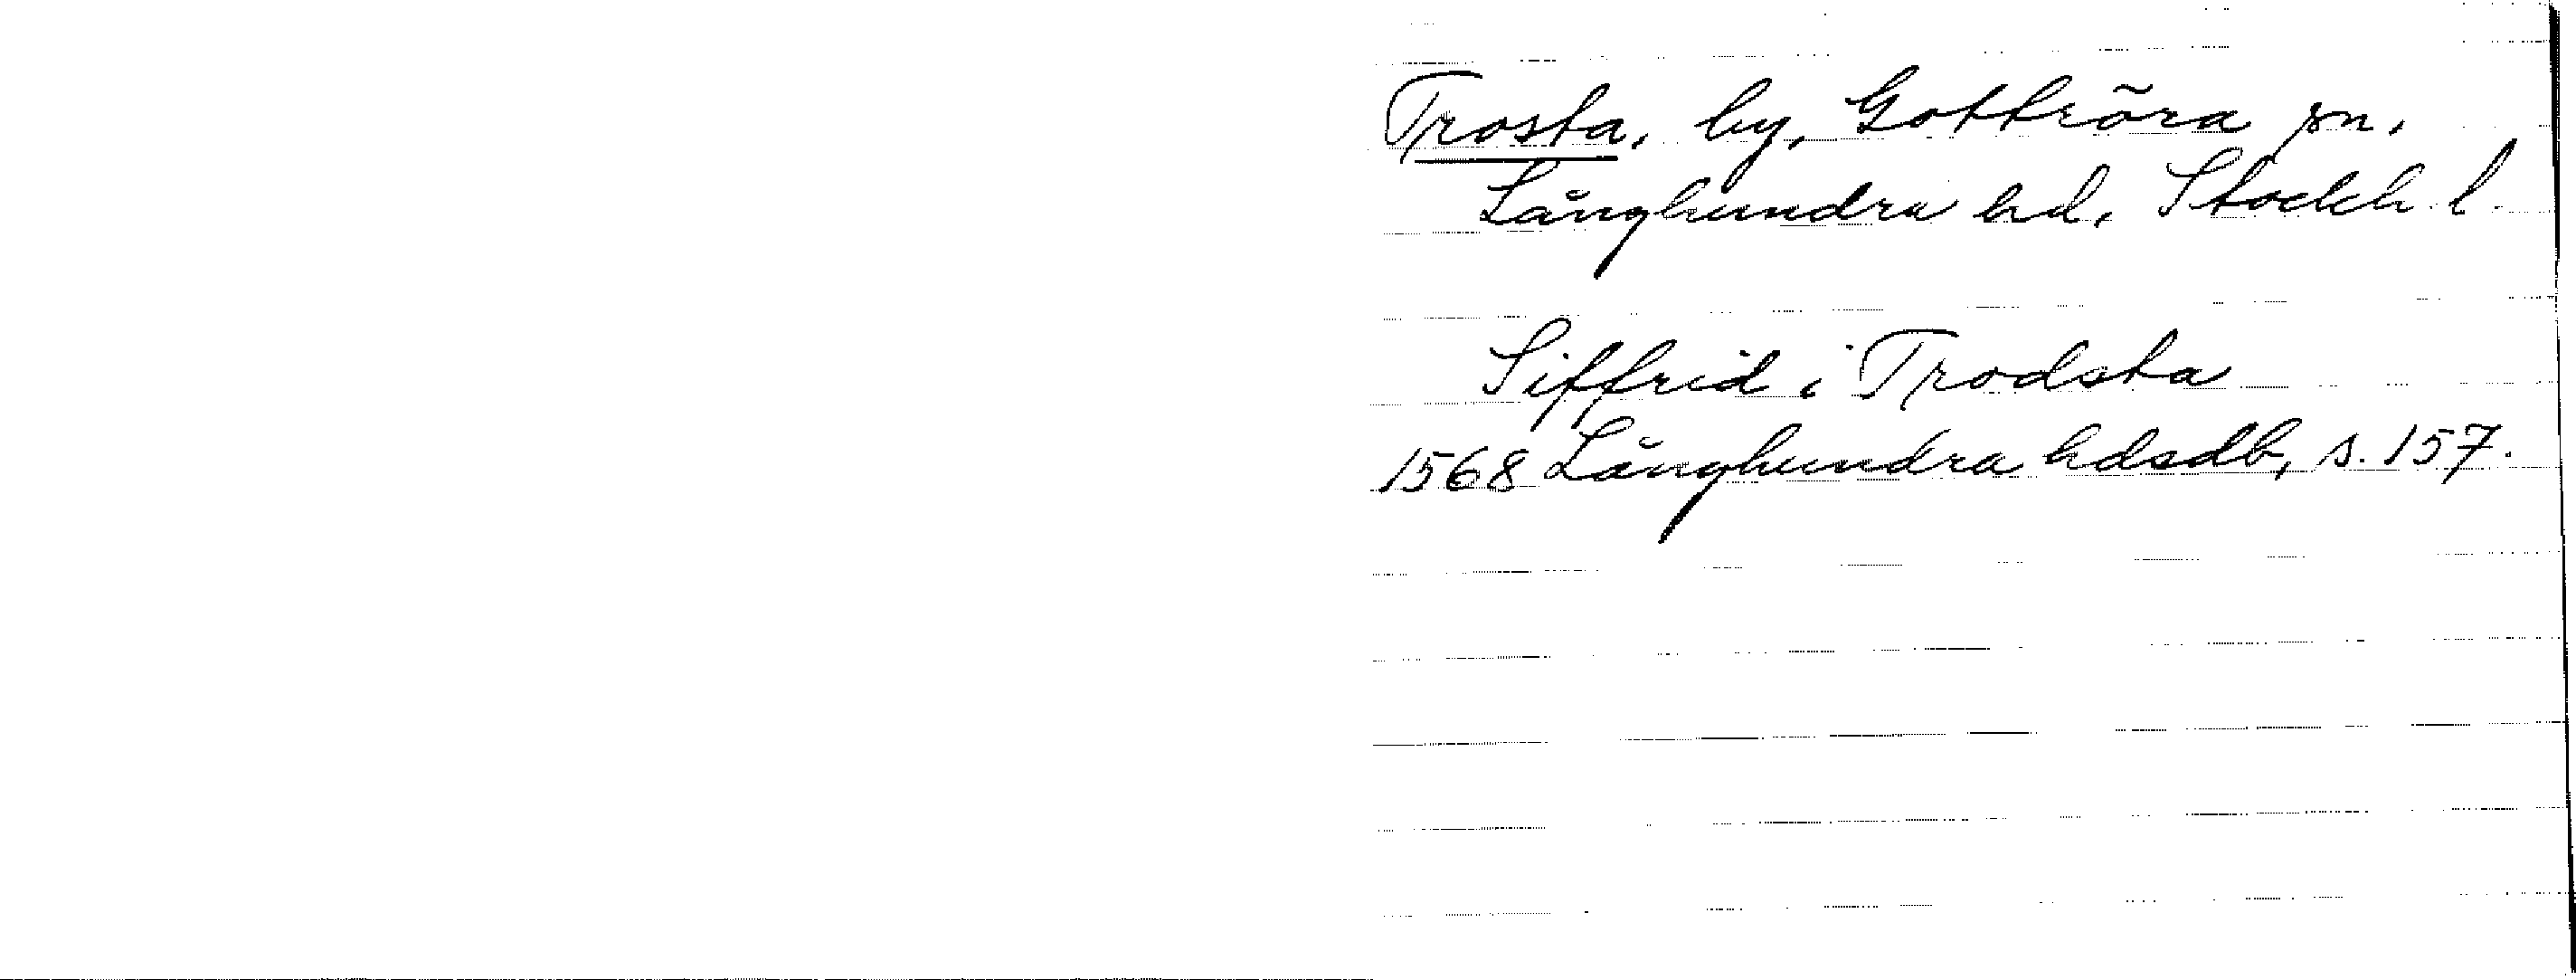 Trosta, by, Gottröra sn,
Långhundra hd, Stockh. l.
Siffrid i Trodsta
1568 Långhundra hdsdb, s. 157.